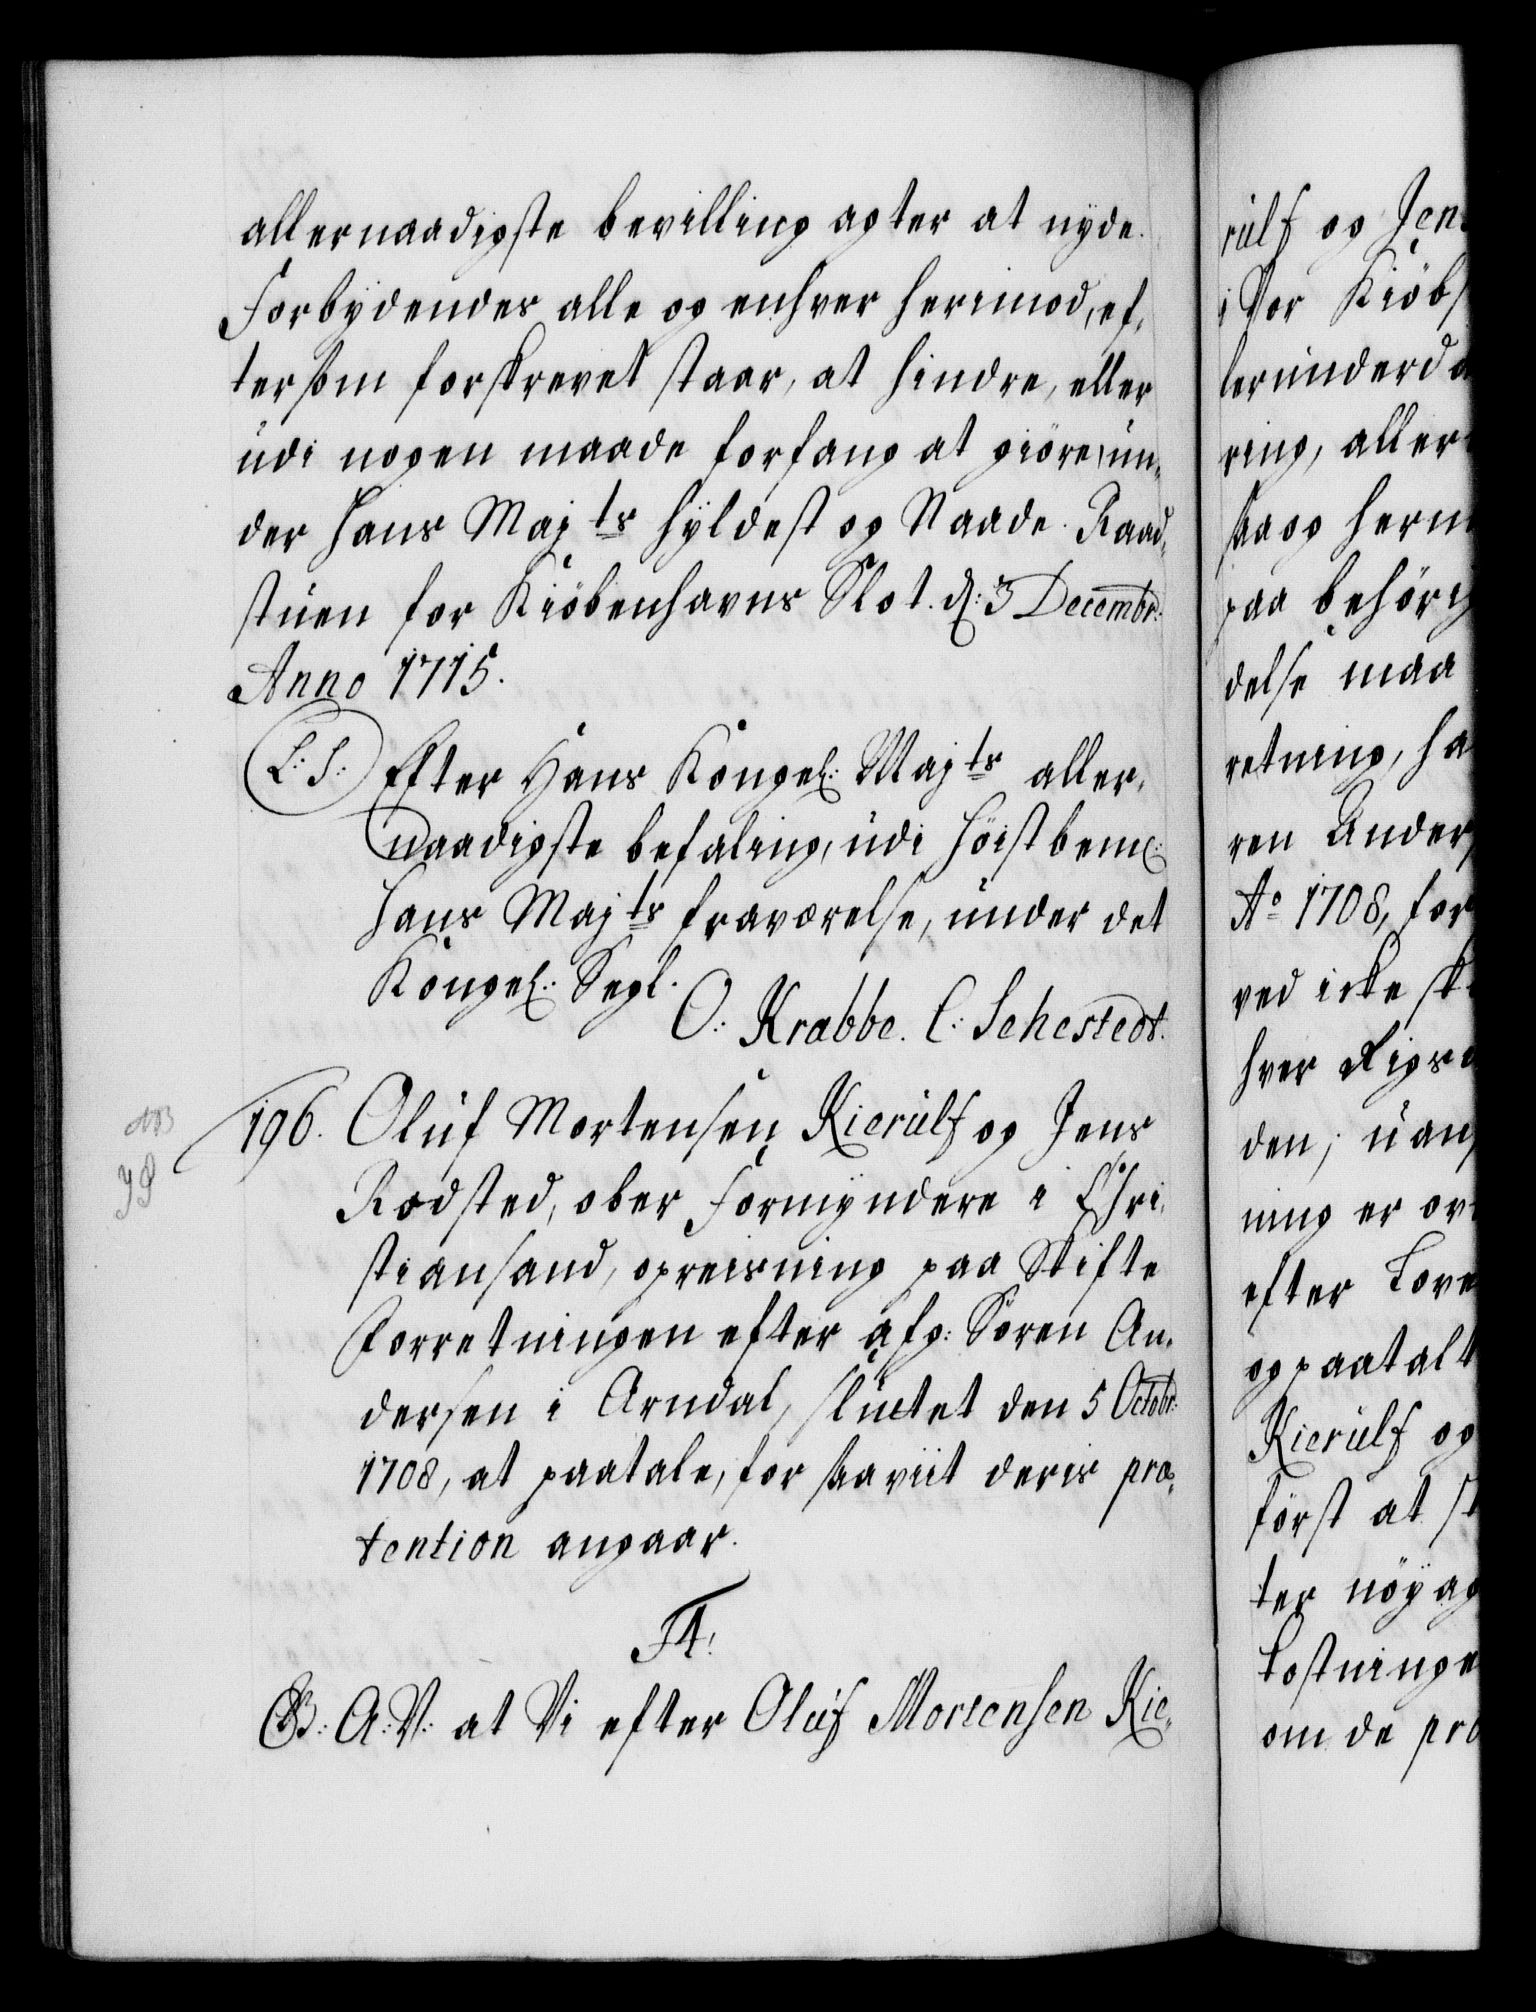 allernaadigste bevilling agter at nyde.
Forbydendes alle og enhver herimod, ef,
tersom forskrevet staar, at hindre, eller
udi nogen maade forfang at giöre, un,
der Hans Majts hyldest og Naade. Raad,
stuen for Kiöbenhavns Slot. d: 3 Decembr:
Anno 1715.
L: S: Efter Hans Kongel: Majts aller,
naadigste befaling, udi höistbem:
Hans Majts fraværelse, under det
Kongel: Segl.
O: Krabbe. C: Sehestedt.
NB
196. Oluf Mortensen Kierulf og Jens
Rodsted, ober Formyndere i Chri,
stiansand, opreisning paa Skifte
Forretningen efter afg: Sören An,
dersen i Arndal, sluctet den 5 Octobr:
1708, at paatale, for saaviit deris præ,
tention angaar.
F4!
G: A: V: at Vi efter Oluf Mortensen Kie,
rulf og Jens
i Vor Kiöbs
lerunderda
ring, aller
saa og herm
paa behöri
delse maa
retning, ha
ren Anders
Ao 1708, for
ved icke sk
hver Rigsd
den, uans
ning er ov
efter Love
og paatalt
Kierulf og
först at s
ter nöyag
kostninge
om de præ